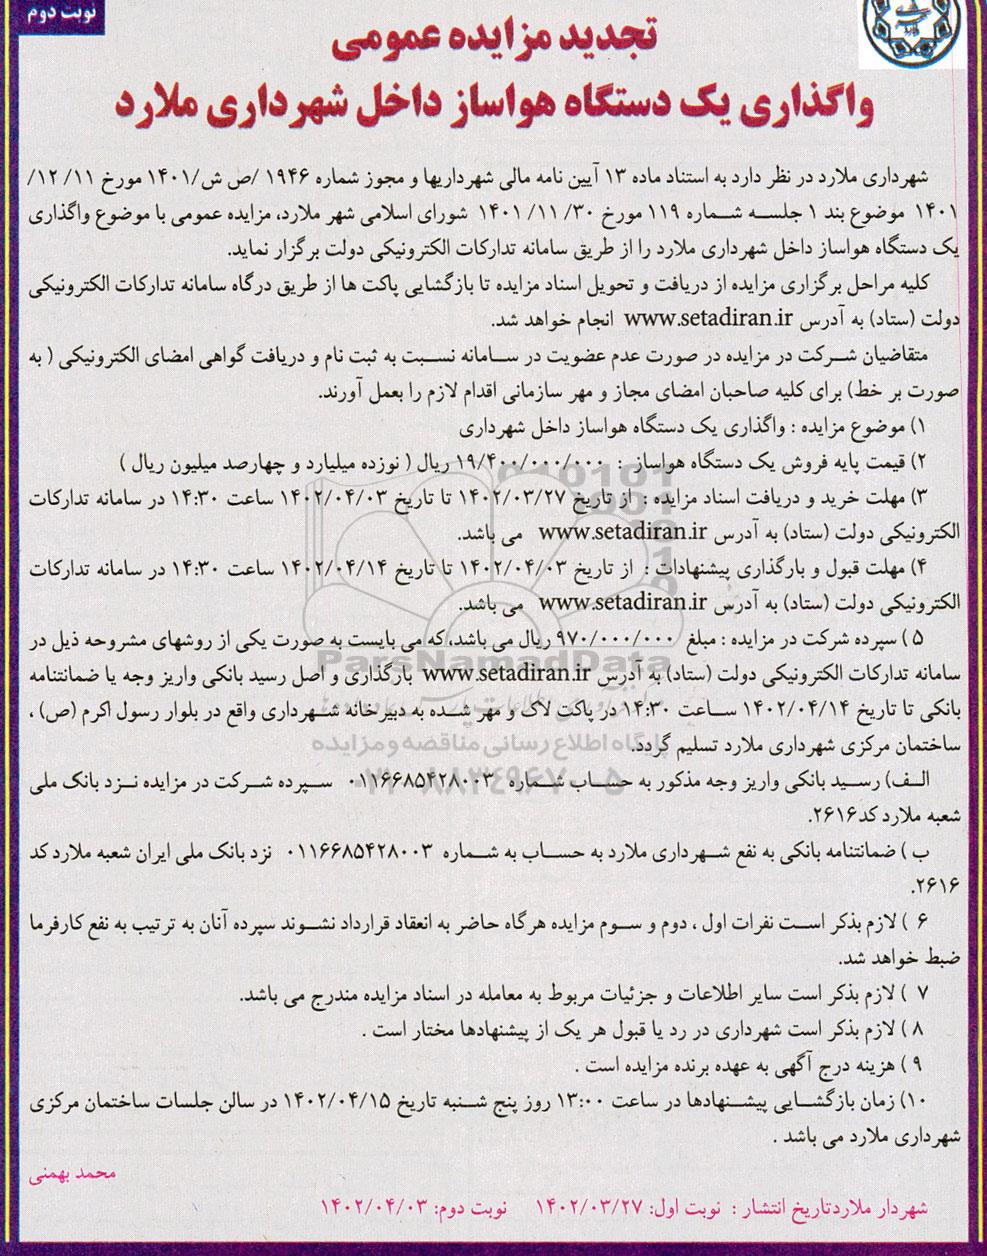 نوبت دوم
تجدید مزایده عمومی
واگذاری یک دستگاه هواساز داخل شهرداری ملارد
شهرداری ملارد در نظر دارد به استناد ماده ۱۳ آیین نامه مالی شهرداریها و مجوز شماره ۱۹۴۶ /ص ش/۱۴۰۱ مورخ ۱۱/ ۱۲/
۱۴۰۱ موضوع بند ۱ جلسه شماره ۱۱۹ مورخ ۳۰/ ۱۱/ ۱۴۰۱ شورای اسلامی شهر ملارد، مزایده عمومی با موضوع واگذاری
یک دستگاه هواساز داخل شهرداری ملارد را از طریق سامانه تدارکات الکترونیکی دولت برگزار نماید.
کلیه مراحل برگزاری مزایده از دریافت و تحویل اسناد مزایده تا بازگشایی پاکت ها از طریق درگاه سامانه تدارکات الکترونیکی
دولت (ستاد) به آدرس www.setadiran.ir انجام خواهد شد.
متقاضیان شرکت در مزایده در صورت عدم عضویت در سامانه نسبت به ثبت نام و دریافت گواهی امضای الکترونیکی ( به
صورت بر خط) برای کلیه صاحبان امضای مجاز و مهر سازمانی اقدام لازم را بعمل آورند.
۱) موضوع مزایده : واگذاری یک دستگاه هواساز داخل شهرداری
۲) قیمت پایه فروش یک دستگاه هواساز : ۱۹/۴۰۰/۰۰۰/۰۰۰ ریال ( نوزده میلیارد و چهارصد میلیون ریال )
۳) مهلت خرید و دریافت اسناد مزایده : از تاریخ ۱۴۰۲/۰۳/۲۷ تا تاریخ ۱۴۰۲/۰۴/۰۳ ساعت ۱۴:۳۰ در سامانه تدارکات
الکترونیکی دولت (ستاد) به آدرس www.setadiran.ir می باشد.
۴) مهلت قبول و بارگذاری پیشنهادات : از تاریخ ۱۴۰۲/۰۴/۰۳ تا تاریخ ۱۴۰۲/۰۴/۱۴ ساعت ۱۴:۳۰ در سامانه تدارکات
الکترونیکی دولت (ستاد) به آدرس www.setadiran.ir می باشد.
۵ ) سپرده شرکت در مزایده : مبلغ ۹۷۰/۰۰۰/۰۰۰ ریال می باشد، که می بایست به صورت یکی از روشهای مشروحه ذیل در
سامانه تدارکات الکترونیکی دولت (ستاد) به آدرس www.setadiran.ir بارگذاری و اصل رسید بانکی واریز وجه یا ضمانتنامه
بانکی تا تاریخ ۱۴۰۲/۰۴/۱۴ ساعت ۱۴:۳۰ در پاکت لاک و مهر شده به دبیرخانه شهرداری واقع در بلوار رسول اکرم (ص) ،
ساختمان مرکزی شهرداری ملارد تسلیم گردد.
الف) رسید بانکی واریز وجه مذکور به حساب شماره ۰۱۱۶۶۸۵۴۲۸۰۰۳ سپرده شرکت در مزایده نزد بانک ملی
شعبه ملارد کد۲۶۱۶.
ب ) ضمانتنامه بانکی به نفع شهرداری ملارد به حساب به شماره ۰۱۱۶۶۸۵۴۲۸۰۰۳ نزد بانک ملی ایران شعبه ملارد کد
۲۶۱۶.
۶ ) لازم بذکر است نفرات اول ، دوم و سوم مزایده هرگاه حاضر به انعقاد قرارداد نشوند سپرده آنان به ترتیب به نفع کارفرما
ضبط خواهد شد.
۷ ) لازم بذکر است سایر اطلاعات و جزئیات مربوط به معامله در اسناد مزایده مندرج می باشد.
۸ ) لازم بذکر است شهرداری در رد یا قبول هر یک از پیشنهادها مختار است .
۹ ) هزینه درج آگهی به عهده برنده مزایده است .
۱۰) زمان بازگشایی پیشنهادها در ساعت ۱۳:۰۰ روز پنج شنبه تاریخ ۱۴۰۲/۰۴/۱۵ در سالن جلسات ساختمان مرکزی
شهرداری ملارد می باشد .
محمد بهمنی
شهردار ملاردتاریخ انتشار : نوبت اول: ۱۴۰۲/۰۳/۲۷ نوبت دوم: ۱۴۰۲/۰۴/۰۳
ParsNamadData
پایگاه اطلاع رسانی مناقصه و مزایده